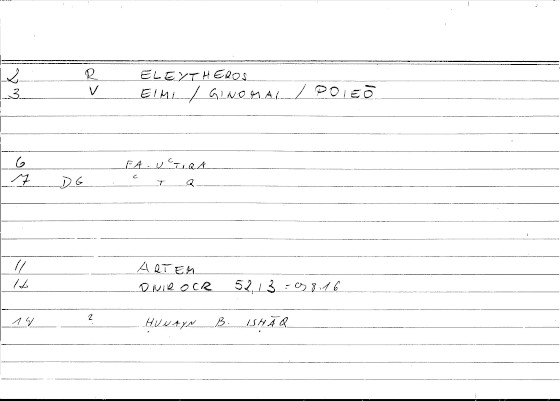 2 R ELEYTHEROS
3 V EIMI / GINOMAI / POIEŌ
6 FA-UᶜTIRA
17 DG ᶜ T R
11 ARTEM
12 ONIROCR 52,13 = 98.16
14 ? ḤUNAYN B. ISḤĀQ